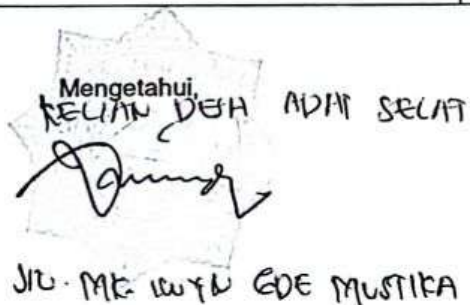 Mengetahui,
KELIAN DESA ADAT SELAT
JRO. MK. WYN GDE MUSTIKA